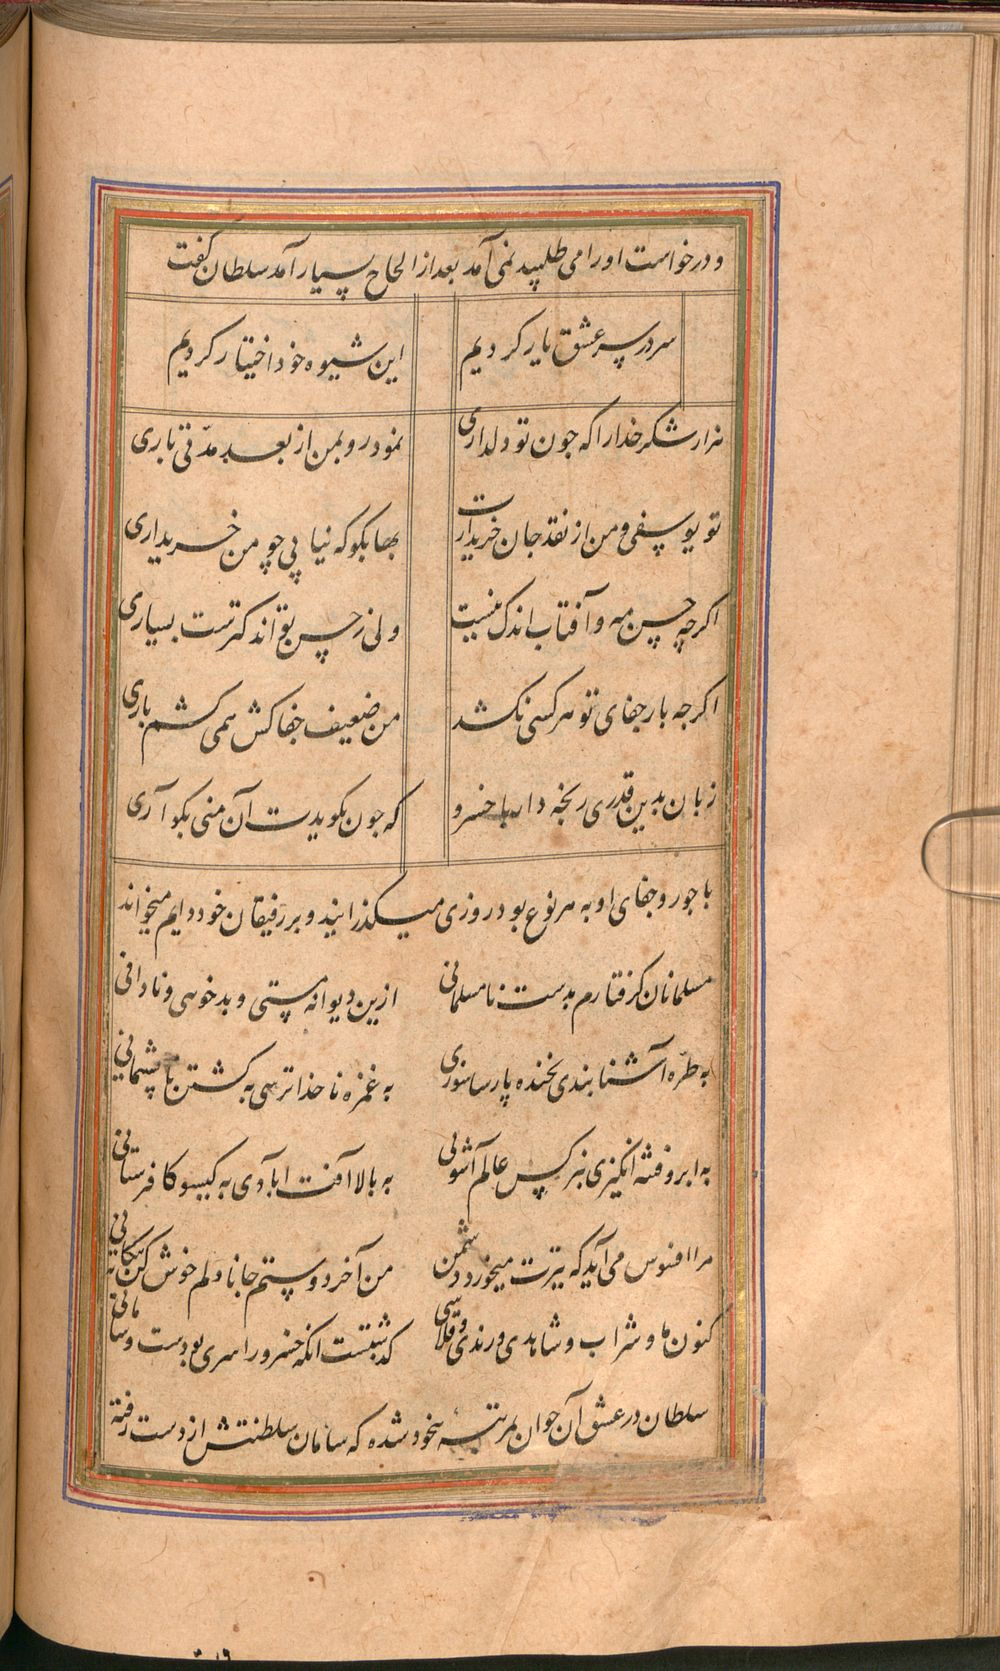 و درخواست او را می طلبید نمی آمد بعد از الحاح بسیار آمد سلطان گفت
سر در سر عشق یار کردیم این شیوه خود اختیار کردیم
هزار شکر خدا را که جون تو دلداری نمود رو بمن از بعد مدّتی باری
تو یوسفی و من از نقد جان خریدارت بها بکو که نیابی چو من خریداری
اکرچه حسن مه و آفتاب اندک نیست ولی ز حسن تو اندکترست بسیاری
اکرجه بار جفای تو هر کسی نکشد من ضعیف جفاکش همی کشم باری
زبان بدین قدری رنجه دار با خسرو که جون بکویدت آن منی بکو آری
با جور و جفای او به هر نوع بود روزی میکذرانید و بر رفیقان خود دایم میخواند
مسلمانان کرفتارم بدست نامسلمانی ازین دیوانه مستی و بدخویی و نادانی
به طرّه آشنا بندی بخنده پارسا سوزی به غمزه ناخدا ترسی به کشتن ناپشیمانی
به ابرو فتنه انکیزی بنرکس عالم آشوبی به بالا آفت آبادی به کیسو کافرستانی
مرا افسوس می آید که تیرت میخورد دشمن من آخر دوستم جانا دلم خوش کن به پیکانی
کنون ما و شراب و شاهدی و رندی و قلاشی کذشتست انکه خسرو را سری بودست و سامانی
سلطان در عشق آن جوان بمرتبه بیخود شده که سامان سلطنتش از دست رفته